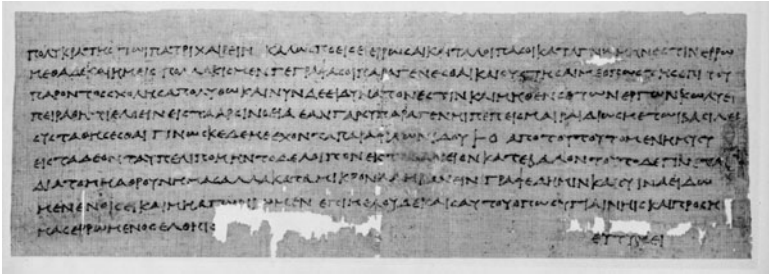 ΠΟΛΥΚΡΑΤΗΣ ΤΩΙ ΠΑΤΡΙ ΧΑΙΡΕΙΝ ΚΑΛΩΣ ΠΟΕΙΣ ΕΙ ΕΡΡΩΣΑΙ ΚΑΙ ΤΑ ΛΟΙΠΑ ΣΟΙ ΚΑΤΑ ΓΝΩΜΗΝ ΕΣΤΙΝ ΕΡΡΩ
ΜΕΘΑ ΔΕ ΚΑΙ ΗΜΕΙΣ ΠΟΛΛΑΚΙΣ ΜΕΝ ΓΕΓΡΑΦΑ ΣΟΙ ΠΑΡΑΓΕΝΕΣΘΑΙ ΚΑΙ ΣΥΣΤΗΣΑΙ ΜΕ ΟΠΩΣ ΤΗΣ ΕΠΙ ΤΟΥ
ΠΑΡΟΝΤΟΣ ΣΧΟΛΗΣ ΑΠΟΛΥΘΩ ΚΑΙ ΝΥΝ ΔΕ ΕΙ ΔΥΝΑΤΟΝ ΕΣΤΙΝ ΚΑΙ ΜΗΘΕΝ ΣΕ ΤΩΝ ΕΡΓΩΝ ΚΩΛΥΕΙ
ΠΕΙΡΑΘΗΤΙ ΕΛΘΕΙΝ ΕΙΣ ΤΑ ΑΡΣΙΝΟΕΙΑ ΕΑΝ ΓΑΡ ΣΥ ΠΑΡΑΓΕΝΗΙ ΠΕΠΕΙΣΜΑΙ ΡΑΙΔΙΩΣ ΜΕ ΤΩΙ ΒΑΣΙΛΕΙ
ΣΥΣΤΑΘΗΣΕΣΘΑΙ ΓΙΝΩΣΚΕ ΔΕ ΜΕ ΕΧΟΝΤΑ ΠΑΡΑ ΦΙΛΩΝΙΔΟΥ 𐅂 Ο ΑΠΟ ΤΟΥΤΟΥ ΤΟ ΜΕΝ ΗΜΥΣΥ
ΕΙΣ ΤΑ ΔΕΟΝΤΑ ΥΠΕΛΙΠΟΜΗΝ ΤΟ ΔΕ ΛΟΙΠΟΝ ΕΙΣ ΤΟ ΔΑΝΕΙΟΝ ΚΑΤΕΒΑΛΟΝ ΤΟΥΤΟ ΔΕ ΓΙΝΕΤΑΙ
ΔΙΑ ΤΟ ΜΗ ΑΘΡΟΥΝ ΗΜΑΣ ΑΛΛΑ ΚΑΤΑ ΜΙΚΡΟΝ ΛΑΜΒΑΝΕΙΝ ΓΡΑΦΕ Δ ΗΜΙΝ ΚΑΙ ΣΥ ΙΝΑ ΕΙΔΩ
ΜΕΝ ΕΝ ΟΙΣ ΕΙ ΚΑΙ ΜΗ ΑΓΩΝΙΩΜΕΝ ΕΠΙΜΕΛΟΥ ΔΕ ΚΑΙ ΣΑΥΤΟΥ ΟΠΩΣ ΥΓΙΑΙΝΗΙΣ ΚΑΙ ΠΡΟΣ Η
ΜΑΣ ΕΡΡΩΜΕΝΟΣ ΕΛΘΗΙΣ
ΕΥΤΥΧΕΙ